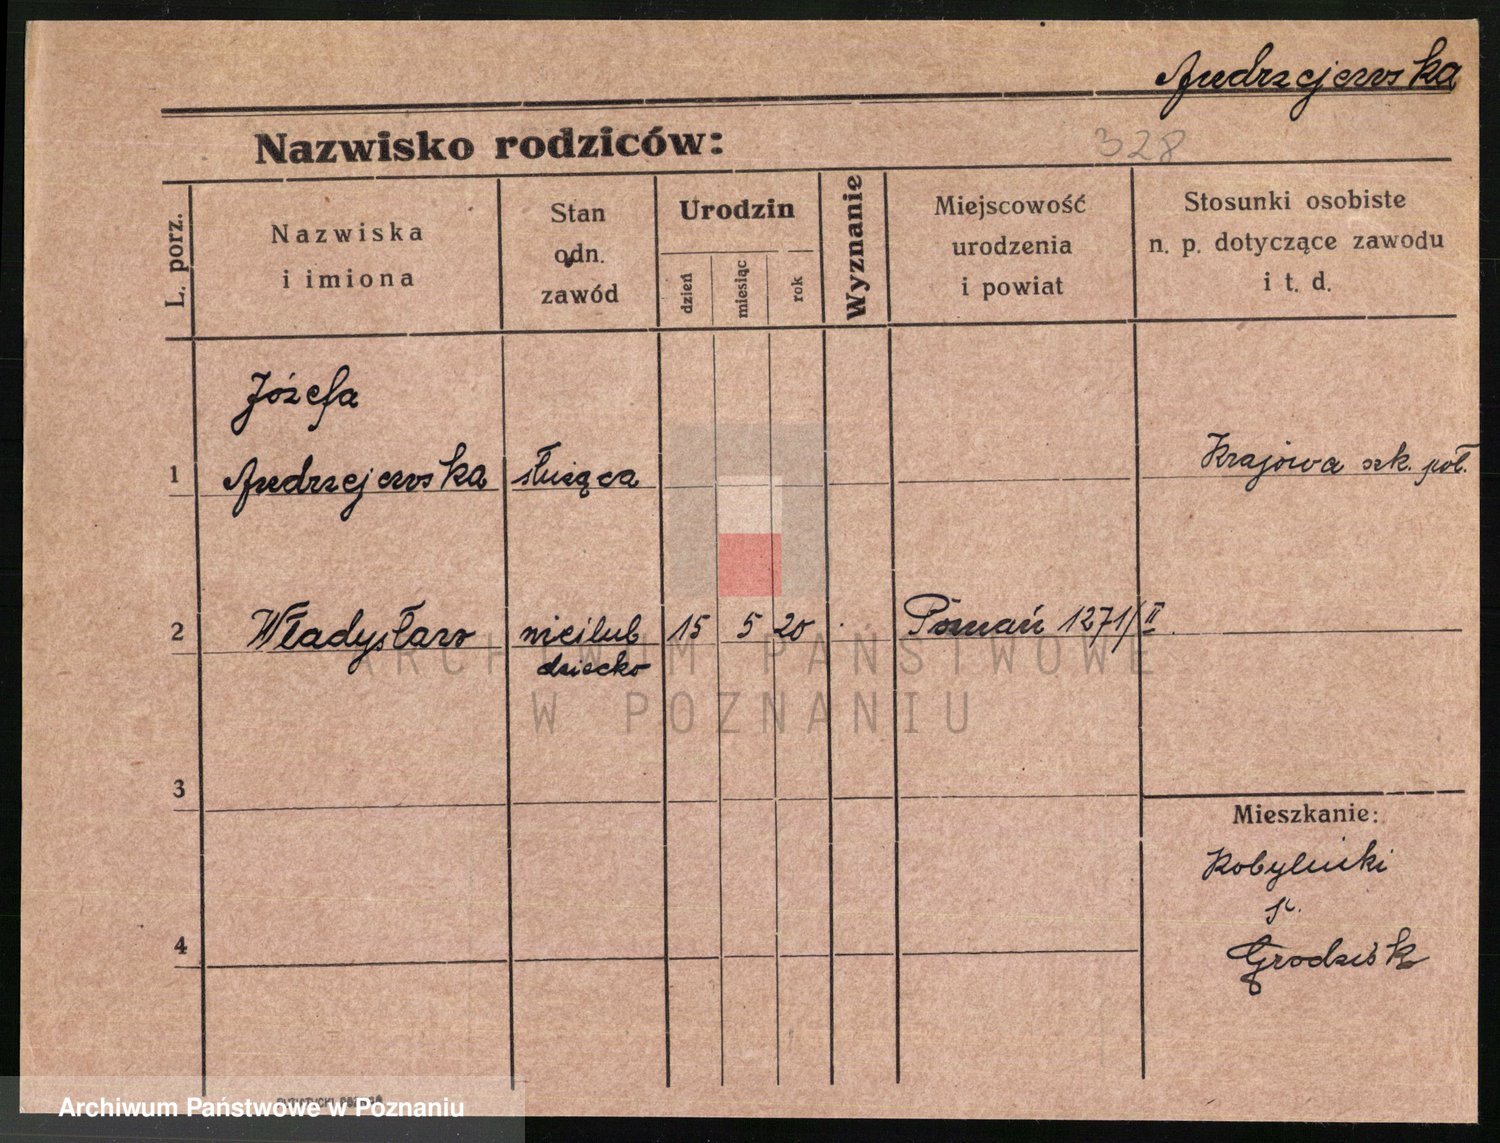 Andrzejewska
Nazwisko rodziców:
328
L. porz.
Nazwiska
i imiona
Stan
odn.
zawód
Urodzin
dzień
miesiąc
rok
Wyznanie
Miejscowość
urodzenia
i powiat
Stosunki osobiste
n. p. dotyczące zawodu
i t. d.
Józefa
1 Andrzejewska służąca Krajowa szk. poł.
2 Władysław nieślub 15 5 20 Poznań 1271/II
dziecko
ARCHIWUM PAŃSTWOWE
W POZNANIU
3
Mieszkanie:
Kobylniki
p.
4 Grodzisk
Archiwum Państwowe w Poznaniu